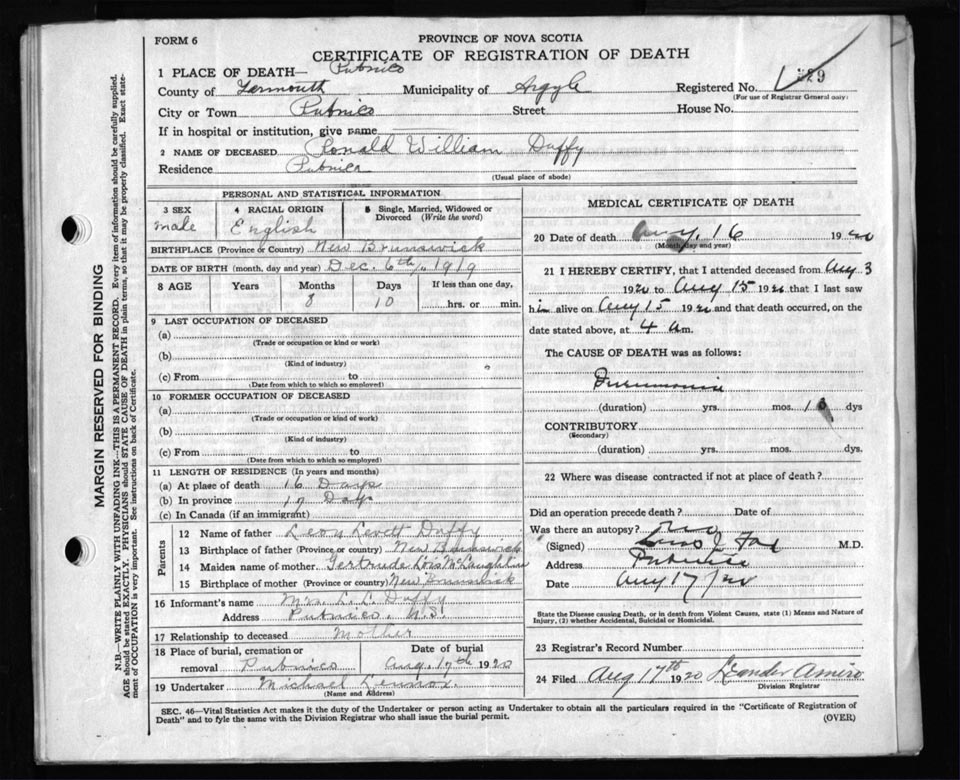 FORM 6
PROVINCE OF NOVA SCOTIA
CERTIFICATE OF REGISTRATION OF DEATH
1 PLACE OF DEATH— Pubnico
County of Yarmouth Municipality of Argyle Registered No. 329
(For use of Registrar General only)
City or Town Pubnico Street House No.
If in hospital or institution, give name
2 NAME OF DECEASED Ronald William Duffy
Residence Pubnico
(Usual place of abode)
MARGIN RESERVED FOR BINDING
N.B.—WRITE PLAINLY WITH UNFADING INK—THIS IS A PERMANENT RECORD. Every item of information should be carefully supplied.
AGE should be stated EXACTLY. PHYSICIANS should STATE CAUSE OF DEATH in plain terms, so that it may be properly classified. Exact state-
ment of OCCUPATION is very important. See instructions on back of Certificate.
PERSONAL AND STATISTICAL INFORMATION
3 SEX 4 RACIAL ORIGIN 5 Single, Married, Widowed or
Divorced (Write the word)
male English
BIRTHPLACE (Province or Country) New Brunswick
DATE OF BIRTH (month, day and year) Dec. 6th, 1919
8 AGE Years Months Days If less than one day,
8 10 hrs. or min.
9 LAST OCCUPATION OF DECEASED
(a)
(Trade or occupation or kind or work)
(b)
(Kind of industry)
(c) From to
(Date from which to which so employed)
10 FORMER OCCUPATION OF DECEASED
(a)
(Trade or occupation or kind of work)
(b)
(Kind of industry)
(c) From to
(Date from which to which so employed)
11 LENGTH OF RESIDENCE (In years and months)
(a) At place of death 16 Days
(b) In province 17 Days
(c) In Canada (if an immigrant)
Parents
12 Name of father Leon Levett Duffy
13 Birthplace of father (Province or country) New Brunswick
14 Maiden name of mother Gertrude Lois McLaughlin
15 Birthplace of mother (Province or country) New Brunswick
16 Informant's name Mrs. L. L. Duffy
Address Pubnico, N.S.
17 Relationship to deceased Mother
18 Place of burial, cremation or Date of burial
removal Pubnico Aug. 17th 1920
19 Undertaker Michael Lennox.
(Name and Address)
MEDICAL CERTIFICATE OF DEATH
20 Date of death Aug. 16 1920
(Month, day and year)
21 I HEREBY CERTIFY, that I attended deceased from Aug 3
1920 to Aug 15 1920 that I last saw
him alive on Aug 15 1920 and that death occurred, on the
date stated above, at 4 am.
The CAUSE OF DEATH was as follows:
Pneumonia
(duration) yrs. mos. 13 dys
CONTRIBUTORY
(Secondary)
(duration) yrs. mos. dys
22 Where was disease contracted if not at place of death?
Did an operation precede death? Date of
Was there an autopsy? no
(Signed) M.D.
Address Pubnico
Date Aug 17/20
State the Disease causing Death, or in death from Violent Causes, state (1) Means and Nature of
Injury, (2) whether Accidental, Suicidal or Homicidal.
23 Registrar's Record Number
24 Filed Aug 17th 1920 Leander Amiro
Division Registrar
SEC. 46—Vital Statistics Act makes it the duty of the Undertaker or person acting as Undertaker to obtain all the particulars required in the "Certificate of Registration of
Death" and to fyle the same with the Division Registrar who shall issue the burial permit.
(OVER)